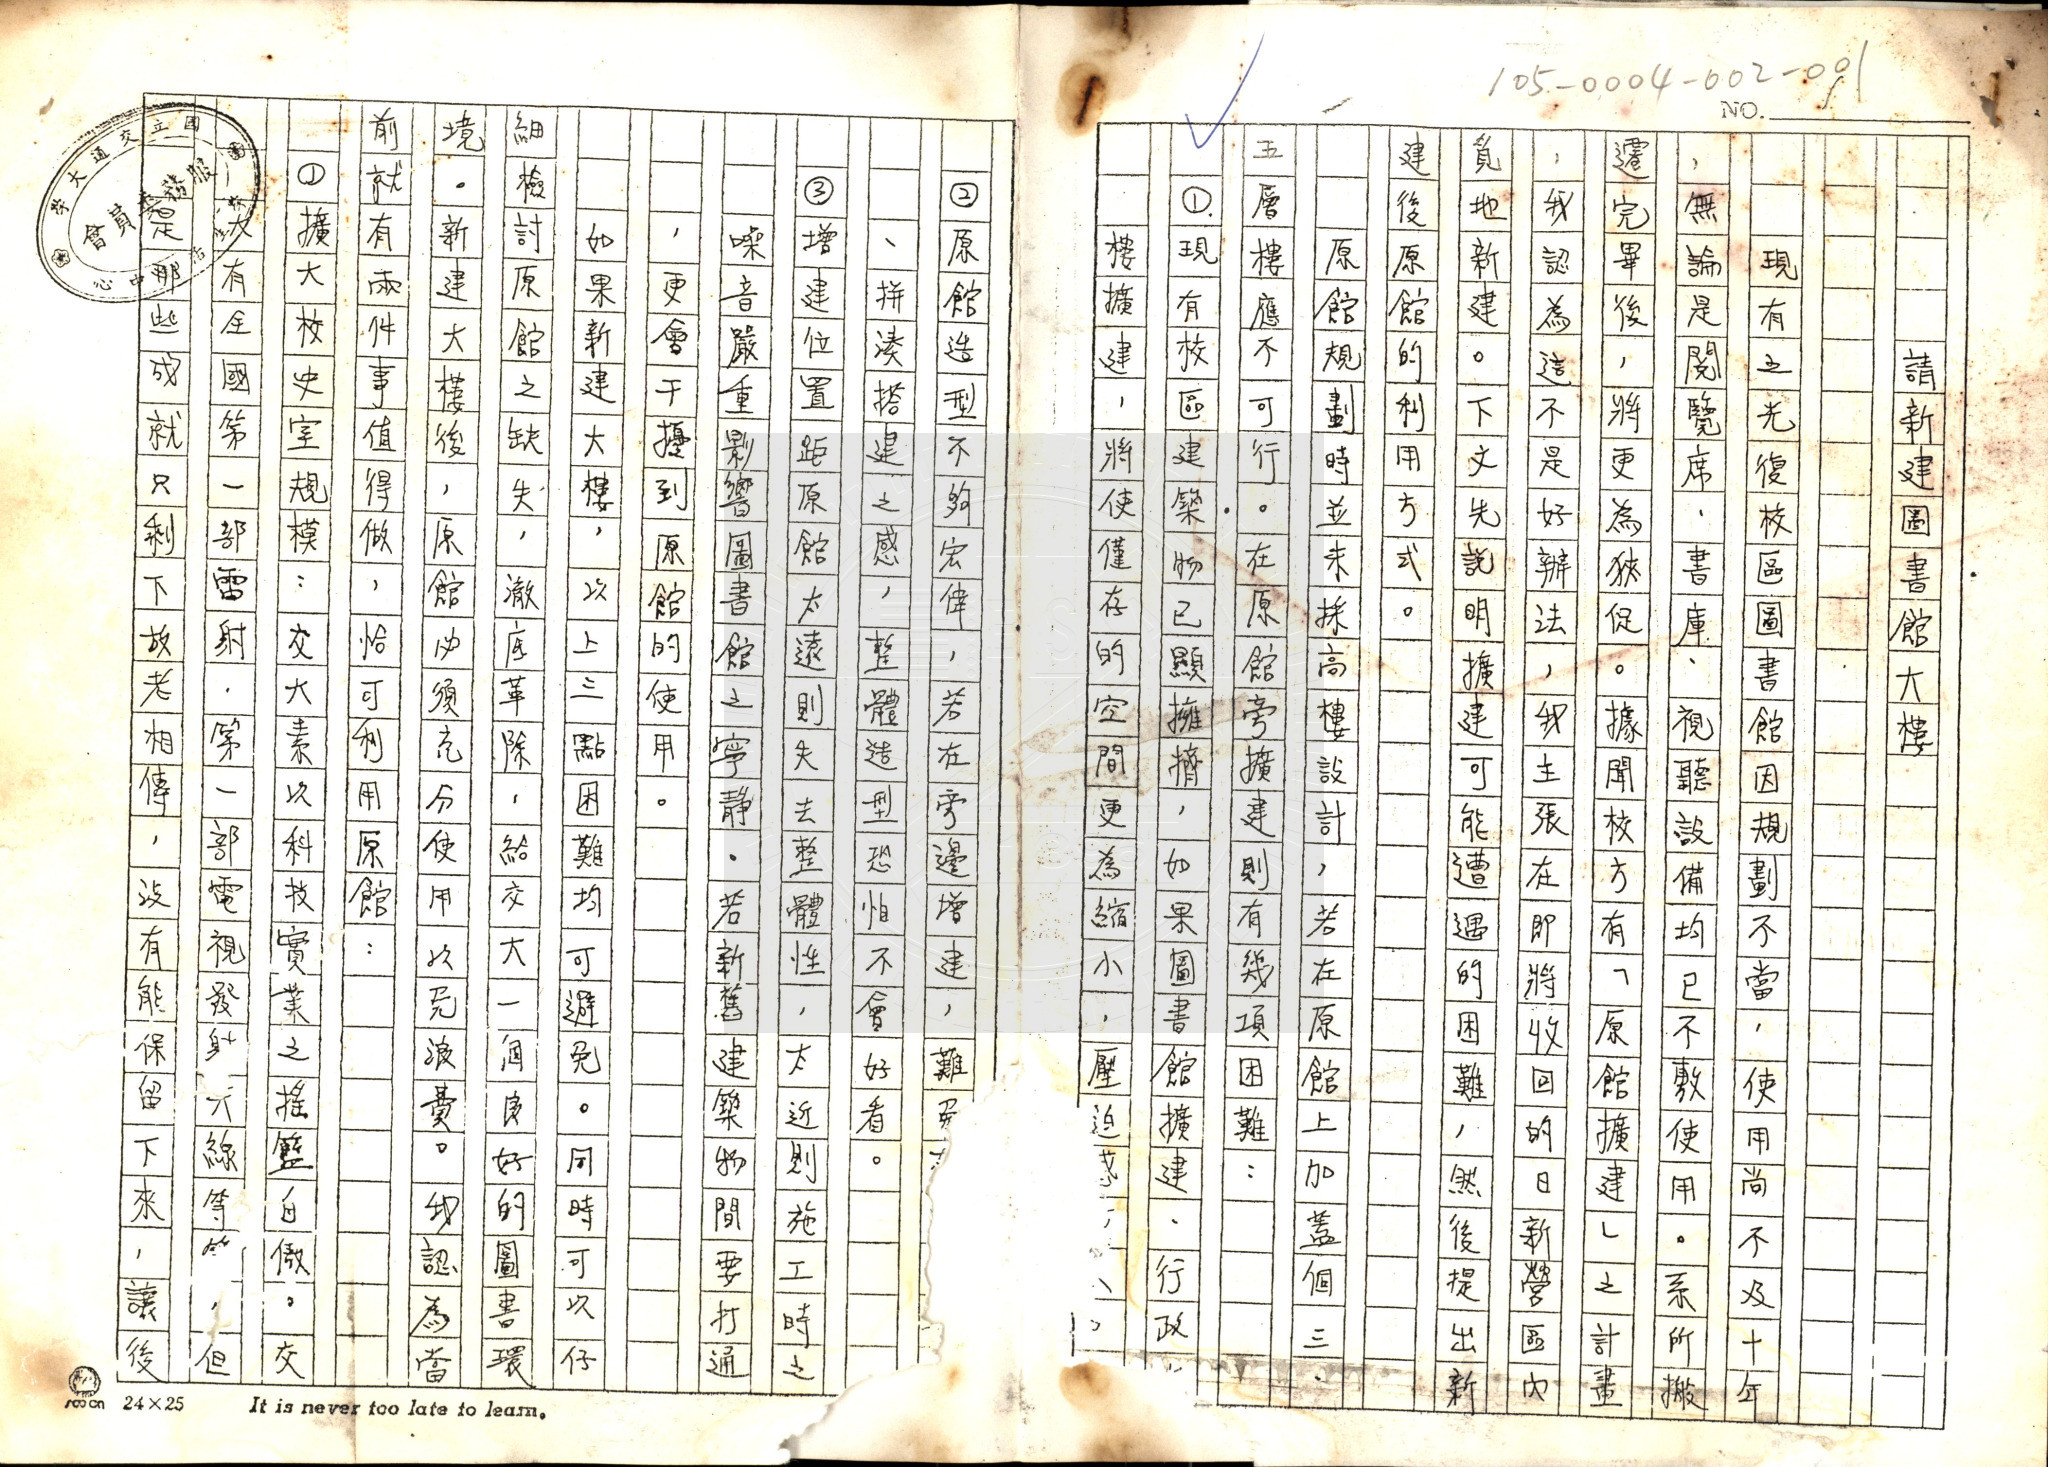 105-0004-002-001
NO.
請新建圖書館大樓
現有之光復校區圖書館因規劃不當，使用尚不及十年
，無論是閱覽席、書庫、視聽設備均已不敷使用。系所搬
遷完畢後，將更為狹促。據聞校方有「原館擴建」之計畫
，我認為這不是好辦法，我主張在即將收回的日新營區內
覓地新建。下文先説明擴建可能遭遇的困難，然後提出新
建後原館的利用方式。
原館規劃時並未採高樓設計，若在原館上加蓋個三、
五層樓應不可行。在原館旁擴建則有幾項困難：
①.現有校區建築物已顯擁擠，如果圖書館擴建、行政
樓擴建，將使僅存的空間更為縮小，壓迫感
②原館造型不夠宏偉，若在旁邊增建，難
、拼湊搭建之感，整體造型恐怕不會好看。
③增建位置距原館太遠則失去整體性，太近則施工時之
噪音嚴重影響圖書館之寧靜。若新舊建築物間要打通
，更會干擾到原館的使用。
如果新建大樓，以上三點困難均可避免。同時可以仔
細檢討原館之缺失，澈底革除，給交大一個良好的圖書環
境。新建大樓後，原館必須充分使用以免浪費。我認為當
前就有兩件事值得做，恰可利用原館：
①擴大校史室規模：交大素以科技實業之搖籃自傲。交
大有全國第一部雷射、第一部電視發射天線等等，但
是那些成就只剩下故老相傳，沒有能保留下來，讓後
國立交通大學
服務委員會
活中心
24×25
It is never too late to learn.